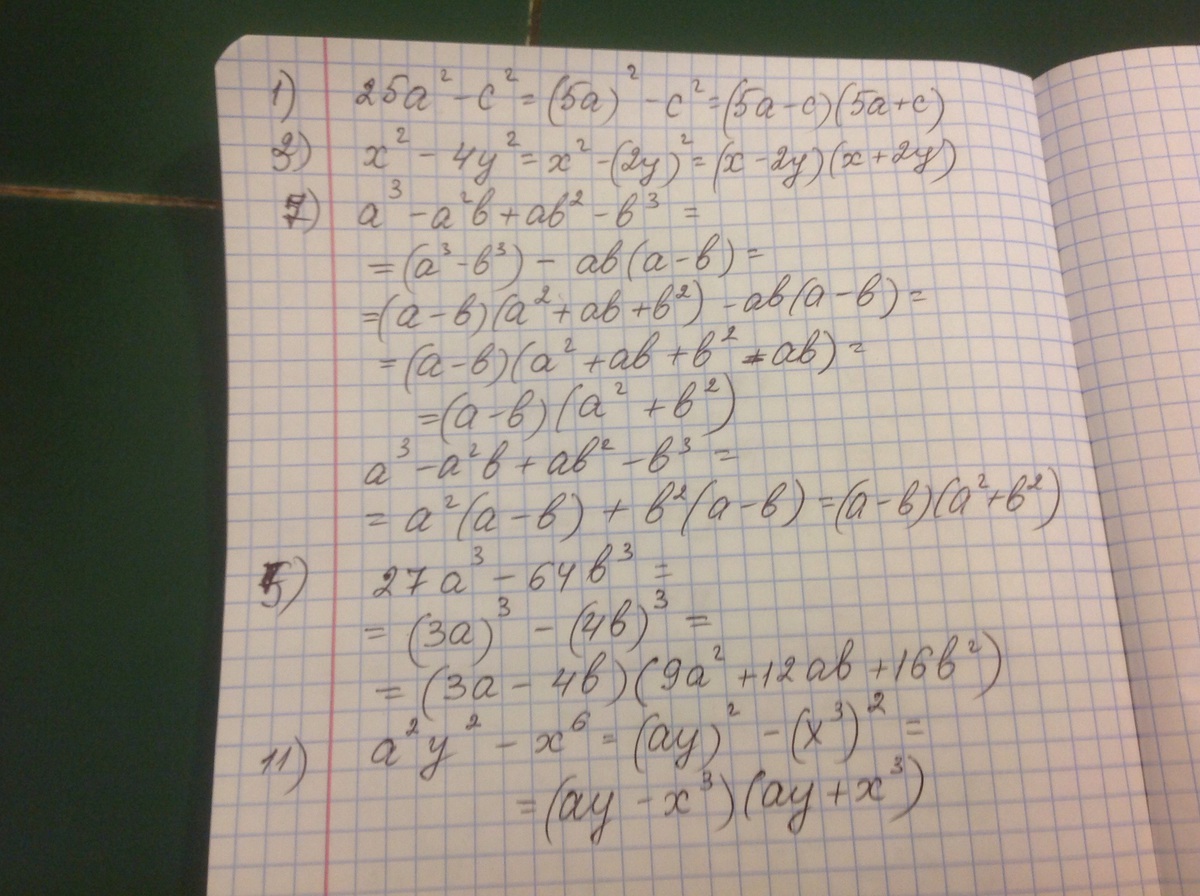 1) 25a² - c² = (5a)² - c² = (5a - c)(5a + c)
2) x² - 4y² = x² - (2y)² = (x - 2y)(x + 2y)
7) a³ - a²в + aв² - в³ =
= (a³ - в³) - aв(a - в) =
= (a - в)(a² + aв + в²) - aв(a - в) =
= (a - в)(a² + aв + в² - aв) =
= (a - в)(a² + в²)
a³ - a²в + aв² - в³ =
= a²(a - в) + в²(a - в) = (a - в)(a² + в²)
5) 27a³ - 64в³ =
= (3a)³ - (4в)³ =
= (3a - 4в)(9a² + 12aв + 16в²)
11) a²y² - x⁶ = (ay)² - (x³)² =
= (ay - x³)(ay + x³)